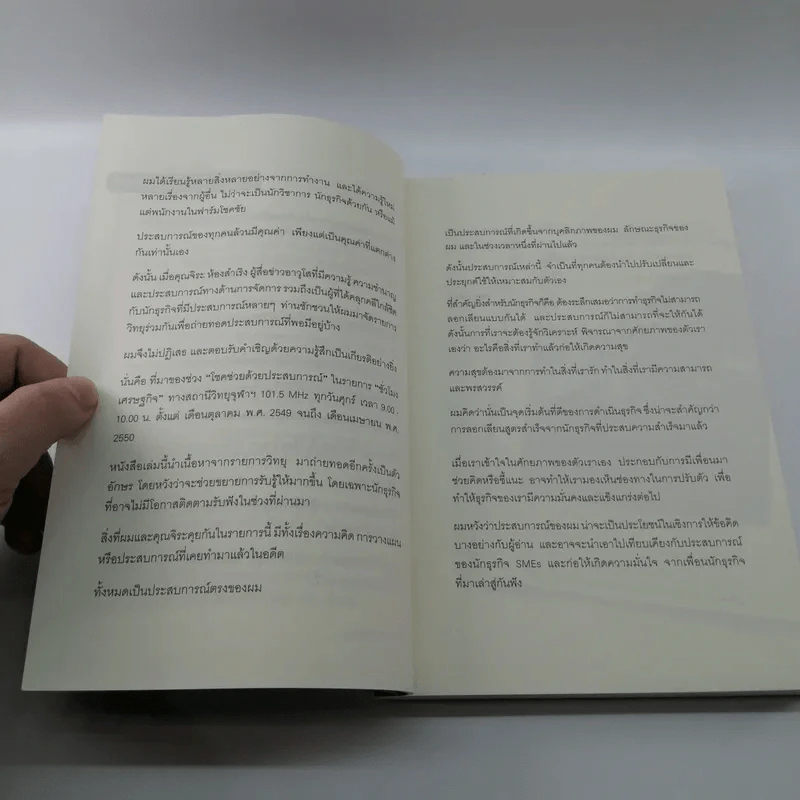 ผมได้เรียนรู้หลายสิ่งหลายอย่างจากการทำงาน และได้ความรู้ใหม่
หลายเรื่องจากผู้อื่น ไม่ว่าจะเป็นนักวิชาการ นักธุรกิจด้วยกัน หรือแม้
แต่พนักงานในฟาร์มโชคชัย
ประสบการณ์ของทุกคนล้วนมีคุณค่า เพียงแต่เป็นคุณค่าที่แตกต่าง
กันเท่านั้นเอง
ดังนั้น เมื่อคุณจิระ ห้องสำเริง ผู้สื่อข่าวอาวุโสที่มีความรู้ ความชำนาญ
และประสบการณ์ทางด้านการจัดการ รวมถึงเป็นผู้ที่ได้คลุกคลีใกล้ชิด
กับนักธุรกิจที่มีประสบการณ์หลายๆ ท่านชักชวนให้ผมมาจัดรายการ
วิทยุร่วมกันเพื่อถ่ายทอดประสบการณ์ที่พอมีอยู่บ้าง
ผมจึงไม่ปฏิเสธ และตอบรับคำเชิญด้วยความรู้สึกเป็นเกียรติอย่างยิ่ง
นั่นคือ ที่มาของช่วง “โชคช่วยด้วยประสบการณ์” ในรายการ “ชั่วโมง
เศรษฐกิจ” ทางสถานีวิทยุจุฬาฯ 101.5 MHz ทุกวันศุกร์ เวลา 9.00 -
10.00 น. ตั้งแต่ เดือนตุลาคม พ.ศ. 2549 จนถึง เดือนเมษายน พ.ศ.
2550
หนังสือเล่มนี้นำเนื้อหาจากรายการวิทยุ มาถ่ายทอดอีกครั้งเป็นตัว
อักษร โดยหวังว่าจะช่วยขยายการรับรู้ให้มากขึ้น โดยเฉพาะนักธุรกิจ
ที่อาจไม่มีโอกาสติดตามรับฟังในช่วงที่ผ่านมา
สิ่งที่ผมและคุณจิระคุยกันในรายการนี้ มีทั้งเรื่องความคิด การวางแผน
หรือประสบการณ์ที่เคยทำมาแล้วในอดีต
ทั้งหมดเป็นประสบการณ์ตรงของผม
เป็นประสบการณ์ที่เกิดขึ้นจากบุคลิกภาพของผม ลักษณะธุรกิจของ
ผม และในช่วงเวลาหนึ่งที่ผ่านไปแล้ว
ดังนั้นประสบการณ์เหล่านี้ จำเป็นที่ทุกคนต้องนำไปปรับเปลี่ยนและ
ประยุกต์ใช้ให้เหมาะสมกับตัวเอง
ที่สำคัญยิ่งสำหรับนักธุรกิจก็คือ ต้องระลึกเสมอว่าการทำธุรกิจไม่สามารถ
ลอกเลียนแบบกันได้ และประสบการณ์ก็ไม่สามารถที่จะให้กันได้
ดังนั้นการที่เราจะต้องรู้จักวิเคราะห์ พิจารณาจากศักยภาพของตัวเรา
เองว่า อะไรคือสิ่งที่เราทำแล้วก่อให้เกิดความสุข
ความสุขต้องมาจากการทำในสิ่งที่เรารัก ทำในสิ่งที่เรามีความสามารถ
และพรสวรรค์
ผมคิดว่านั่นเป็นจุดเริ่มต้นที่ดีของการดำเนินธุรกิจ ซึ่งน่าจะสำคัญกว่า
การลอกเลียนสูตรสำเร็จจากนักธุรกิจที่ประสบความสำเร็จมาแล้ว
เมื่อเราเข้าใจในศักยภาพของตัวเราเอง ประกอบกับการมีเพื่อนมา
ช่วยคิดหรือชี้แนะ อาจทำให้เรามองเห็นช่องทางในการปรับตัว เพื่อ
ทำให้ธุรกิจของเรามีความมั่นคงและแข็งแกร่งต่อไป
ผมหวังว่าประสบการณ์ของผม น่าจะเป็นประโยชน์ในเชิงการให้ข้อคิด
บางอย่างกับผู้อ่าน และอาจจะนำเอาไปเทียบเคียงกับประสบการณ์
ของนักธุรกิจ SMEs และก่อให้เกิดความมั่นใจ จากเพื่อนนักธุรกิจ
ที่มาเล่าสู่กันฟัง